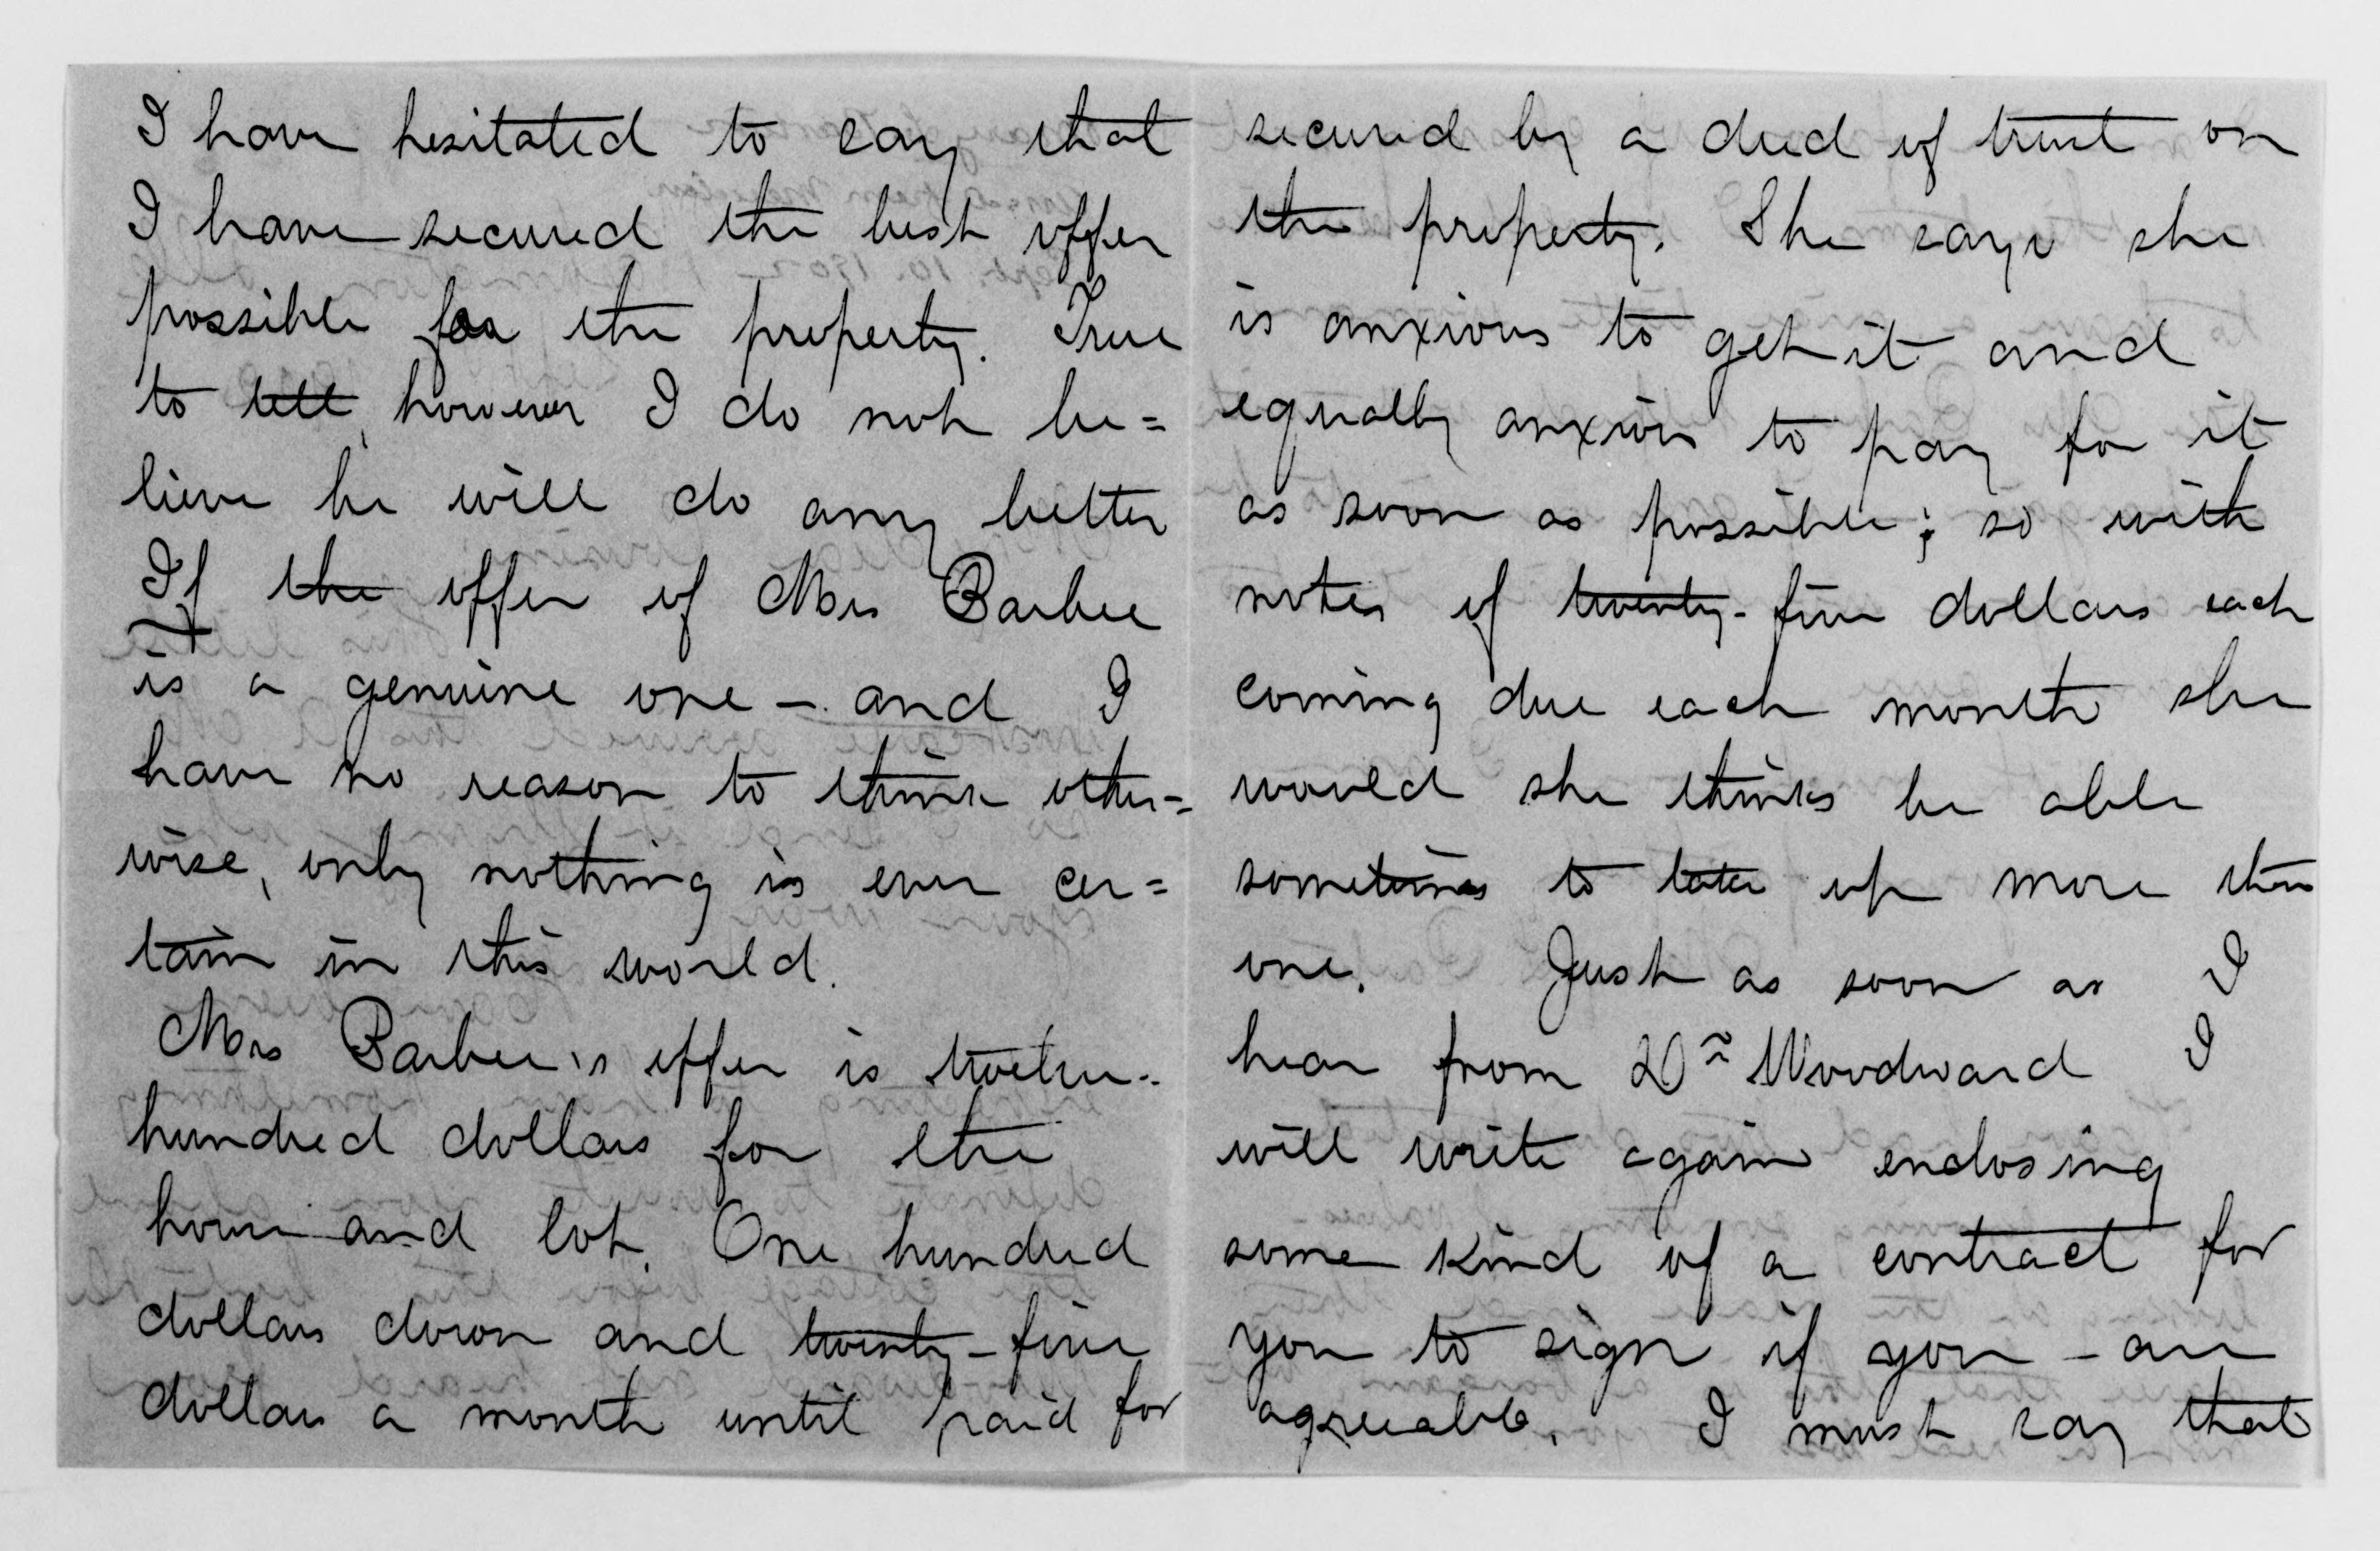 I have hesitated to say that
I have secured the best offer
possible for the property. True
to tell, however I do not be=
lieve he will do any better
If the offer of Mrs Barbee
is a genuine one - and I
have no reason to think other=
wise, only nothing is ever cer=
tain in this world.
Mrs Barbee's offer is twelve-
hundred dollars for the
house and lot. One hundred
dollars down and twenty-five
dollars a month until paid for
secured by a deed of trust on
the property. She says she
is anxious to get it and
equally anxious to pay for it
as soon as possible; so with
notes of twenty-five dollars each
coming due each month she
would she thinks be able
sometimes to take up more than
one. Just as soon as I
hear from Dr Woodward I
will write again enclosing
some kind of a contract for
you to sign if you - are
agreeable. I must say that